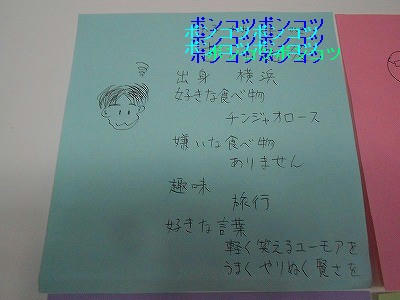 ボンコツボンコツ
ボンコツボンコツ
ボンコツボンコツ
出身 横浜
好きな食べ物
チンジャオロース
嫌いな食べ物
ありません
趣味
旅行
好きな言葉
軽く笑えるユーモアを
うまくやりぬく賢さを